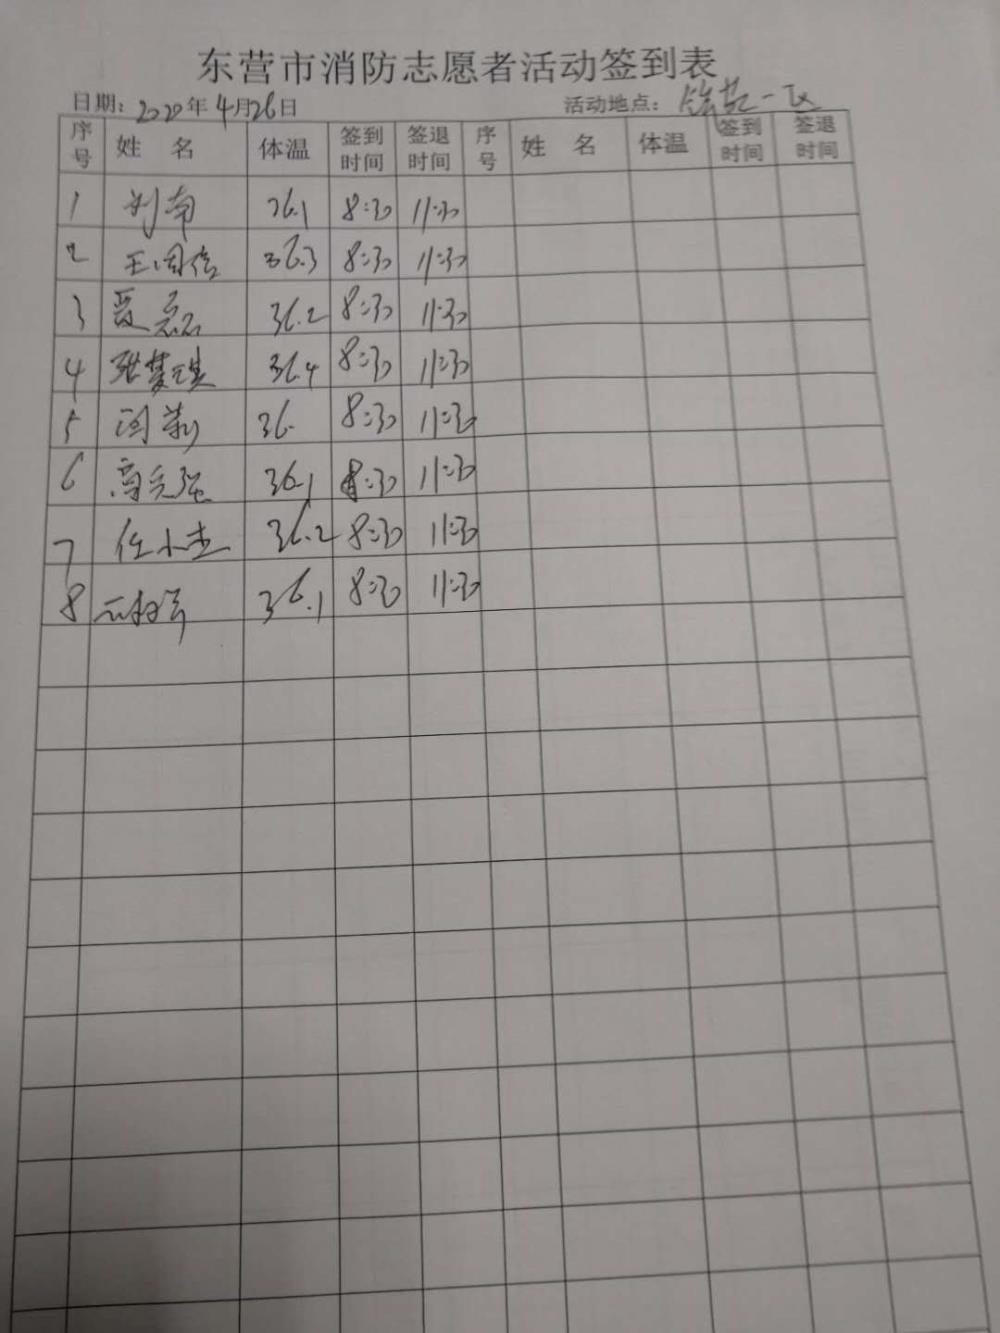 东营市消防志愿者活动签到表
日期：2020年4月26日 活动地点： 一区
序号 姓名 体温 签到时间 签退时间 序号 姓名 体温 签到时间 签退时间
1 刘南 36.1 8:30 11:30
2 王国信 36.3 8:30 11:30
3 聂磊 36.2 8:30 11:30
4 张梦琪 36.4 8:30 11:30
5 36. 8:30 11:30
6 高 强 36.1 8:30 11:30
7 任小杰 36.2 8:30 11:30
8 36.1 8:30 11:30